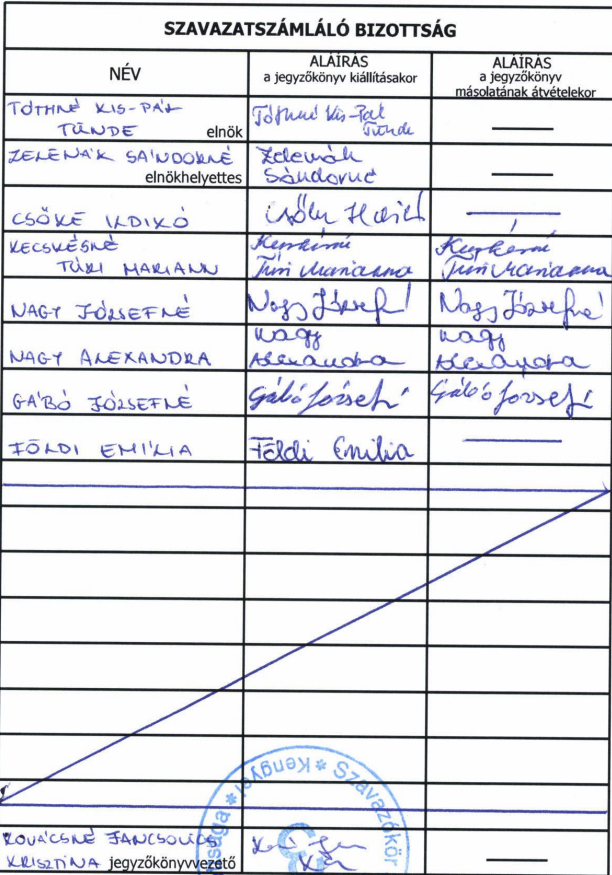 SZAVAZATSZÁMLÁLÓ BIZOTTSÁG
NÉV
ALÁÍRÁS
a jegyzőkönyv kiállításakor
ALÁÍRÁS
a jegyzőkönyv
másolatának átvételekor
TÓTHNÉ KIS-PÁL
TÜNDE elnök
Tóthné Kis-Pál
Tünde
ZELENÁK SÁNDORNÉ
elnökhelyettes
Zelenák
Sándorné
CSŐKE ILDIKÓ
Csőke Ildikó
KECSKÉSNÉ
TÚRI MARIANN
Kecskésné
Túri Marianna
Kecskésné
Túri Marianna
NAGY JÓZSEFNÉ
Nagy Józsefné
Nagy Józsefné
NAGY ALEXANDRA
Nagy
Alexandra
Nagy
Alexandra
GÁBÓ JÓZSEFNÉ
Gábó Józsefné
Gábó Józsefné
FÖLDI EMÍLIA
Földi Emília
Kengyel * Szavazókör
KOVÁCSNÉ JANCSOVICS
KRISZTINA jegyzőkönyvvezető